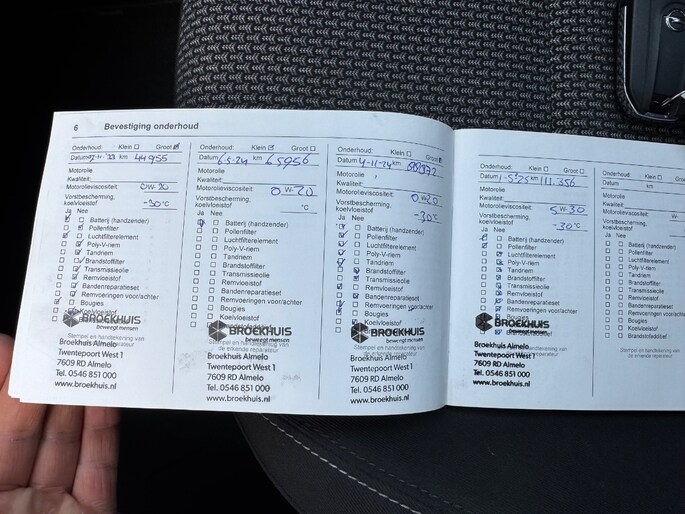 6 Bevestiging onderhoud
Onderhoud: Klein Groot
Datum 2-11-'23 km 44955
Motorolie
Kwaliteit:
Motorolieviscositeit: 0W-20
Vorstbescherming,
koelvloeistof -30°C
Ja Nee
Batterij (handzender)
Pollenfilter
Luchtfilterelement
Poly-V-riem
Tandriem
Brandstoffilter
Transmissieolie
Remvloeistof
Bandenreparatieset
Remvoeringen voor/achter
Bougies
Koelvloeistof
BROEKHUIS
beweegt mensen
Stempel en handtekening van
de erkende reparateur
Broekhuis Almelo
Twentepoort West 1
7609 RD Almelo
Tel. 0546 851 000
www.broekhuis.nl
Onderhoud: Klein Groot
Datum 6-5-24 km 65956
Motorolie
Kwaliteit:
Motorolieviscositeit: 0 W-20
Vorstbescherming,
koelvloeistof °C
Ja Nee
Batterij (handzender)
Pollenfilter
Luchtfilterelement
Poly-V-riem
Tandriem
Brandstoffilter
Transmissieolie
Remvloeistof
Bandenreparatieset
Remvoeringen voor/achter
Bougies
Koelvloeistof
BROEKHUIS
beweegt mensen
Stempel en handtekening van
de erkende reparateur
Broekhuis Almelo
Twentepoort West 1
7609 RD Almelo
Tel. 0546 851 000
www.broekhuis.nl
Onderhoud: Klein Groot
Datum 4-11-24 km
Motorolie
Kwaliteit:
Motorolieviscositeit: 0W-20
Vorstbescherming,
koelvloeistof -30°C
Ja Nee
Batterij (handzender)
Pollenfilter
Luchtfilterelement
Poly-V-riem
Tandriem
Brandstoffilter
Transmissieolie
Remvloeistof
Bandenreparatieset
Remvoeringen voor/achter
Bougies
Koelvloeistof
BROEKHUIS
beweegt mensen
Stempel en handtekening van
de erkende reparateur
Broekhuis Almelo
Twentepoort West 1
7609 RD Almelo
Tel. 0546 851 000
www.broekhuis.nl
Onderhoud: Klein Groot
Datum 1-5-25 km 111.356
Motorolie
Kwaliteit:
Motorolieviscositeit: 5W-30
Vorstbescherming,
koelvloeistof -30°C
Ja Nee
Batterij (handzender)
Pollenfilter
Luchtfilterelement
Poly-V-riem
Tandriem
Brandstoffilter
Transmissieolie
Remvloeistof
Bandenreparatieset
Remvoeringen voor/achter
Bougies
Koelvloeistof
BROEKHUIS
beweegt mensen
Broekhuis Almelo
Twentepoort West 1
7609 RD Almelo
Tel. 0546 851 000
www.broekhuis.nl
Onderhoud: Klein
Datum km
Motorolie
Kwaliteit:
Motorolieviscositeit: W-
Vorstbescherming,
koelvloeistof
Ja Nee
Batterij (handzender)
Pollenfilter
Luchtfilterelement
Poly-V-riem
Tandriem
Brandstoffilter
Transmissieolie
Remvloeistof
Bandenreparatieset
Remvoeringen voor/achter
Bougies
Koelvloeistof
Stempel en handtekening van
de erkende reparateur